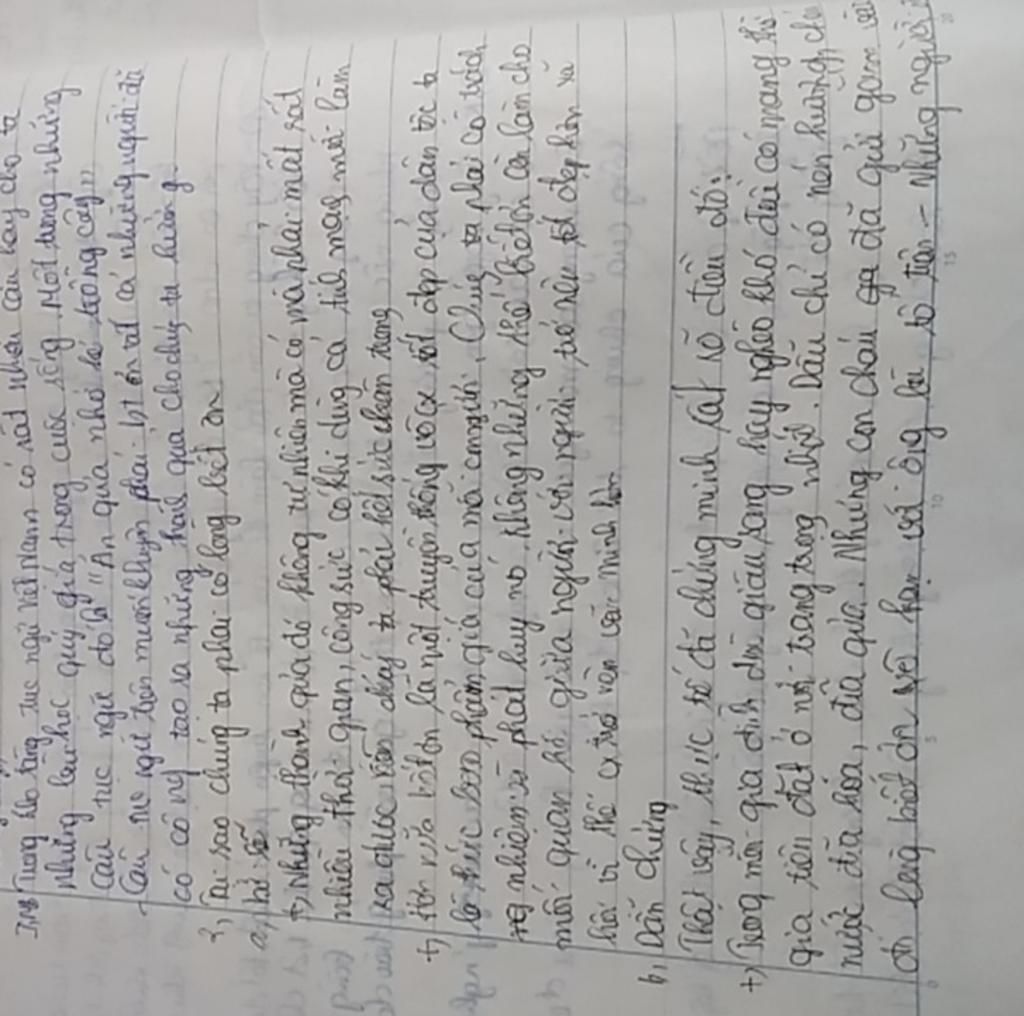 Trong kho tàng tục ngữ Việt Nam có rất nhiều câu hay cho ta
những bài học quý giá trong cuộc sống. Một trong những
câu tục ngữ đó là "Ăn quả nhớ kẻ trồng cây"
- Câu tục ngữ trên muốn khuyên phải bt ơn tất cả những người đã
có công tạo ra những thành quả cho chúng ta hưởng.
2, Tại sao chúng ta phải có lòng biết ơn
a, lẽ
+) Những thành quả đó không tự nhiên mà có mà phải mất rất
nhiều thời gian, công sức có khi dùng cả tính mạng mới làm
ra được vì vậy ta phải hết sức trân trọng
+) Hơn nữa biết ơn là một truyền thống vô cx tốt đẹp của dân tộc ta
là thước đo phẩm giá của mỗi con người. Chúng ta phải có trách
nhiệm phát huy nó. Không những thế biết ơn còn làm cho
mối quan hệ giữa người với người trở nên tốt đẹp hơn xã
hội vì thế cx trở nên văn minh hơn
b, Dẫn chứng
Thật vậy, thực tế đã chứng minh rất rõ điều đó:
+) Trong mỗi gia đình dù giàu sang hay nghèo khó đều có thờ
gia tiên đặt ở nơi trang trọng nhất. Dẫu chỉ có nén hương, chén
nước đĩa hóa, đĩa quả. Nhưng con cháu đã gửi gắm
đó lòng biết ơn vô hạn với ông bà tổ tiên - Những người